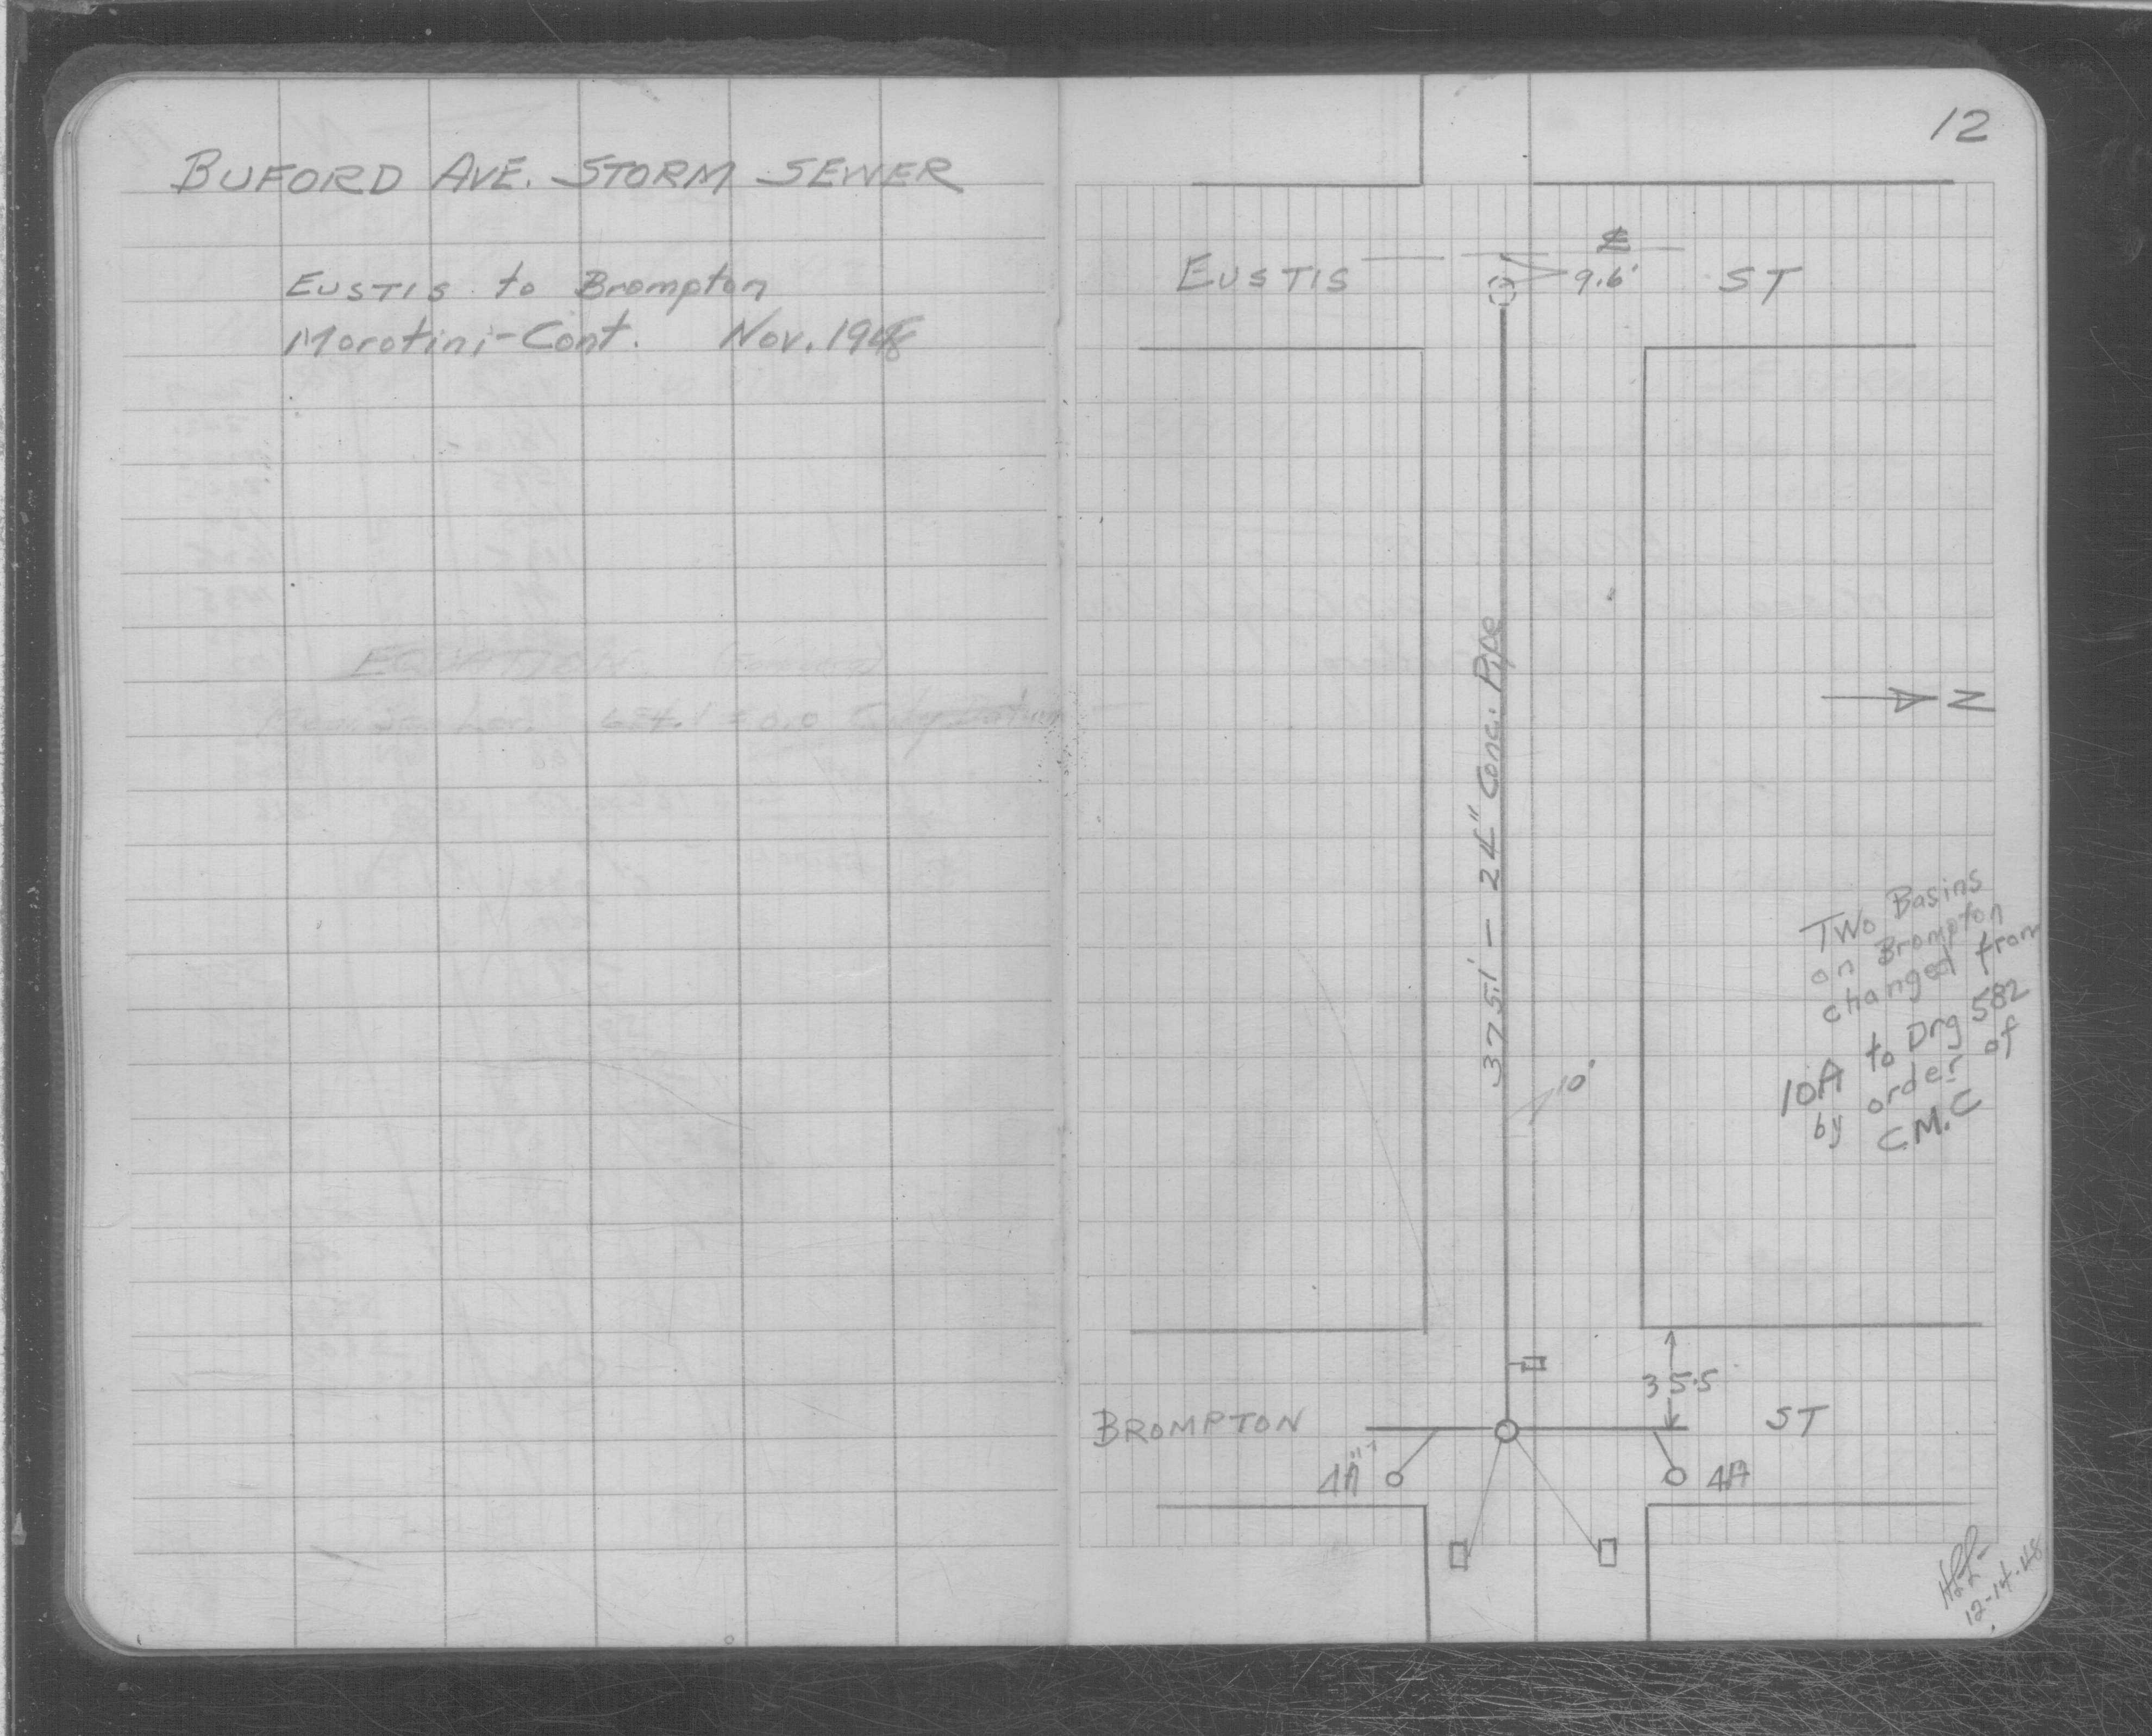 BUFORD AVE. STORM SEWER
EUSTIS to Brompton
Morotini-Cont. Nov. 1948
EQUATION
Mean Sea Lev. 694.1 = 0.0 City Datum
12
EUSTIS ST
9.6'
375.1' - 24" Conc. Pipe
N
10'
Two Basins
on Brompton
changed from
10A to Drg 582
by order of
C.M.C
35.5
BROMPTON ST
4A
4A
12-14-48